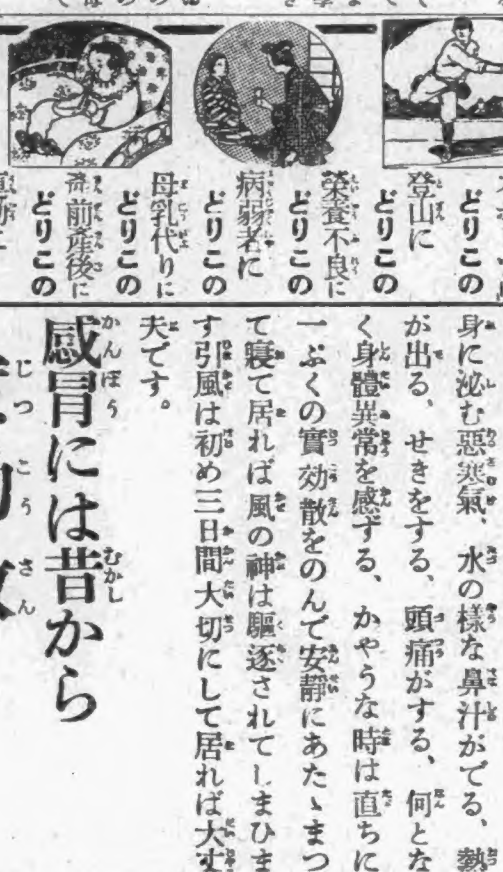 どりこの
登山に
どりこの
榮養不良に
どりこの
病弱者に
どりこの
母乳代りに
どりこの
産前產後に
どりこの
身に泌む惡寒氣、水の様な鼻汁がでる、熱
が出る、せきをする、頭痛がする、何とな
く身體異常を感ずる、かやうな時は直ちに
一ぷくの實効散をのんで安靜にあたゝまつ
て寢て居れば風の神は驅逐されてしまひま
す引風は初め三日間大切にして居れば大丈
夫です。
感冒には昔から